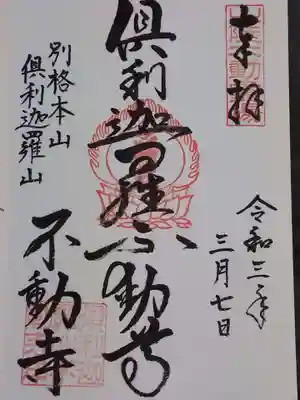 奉拝
令和三年
三月七日
倶利迦羅不動尊
別格本山
倶利迦羅山
不動寺